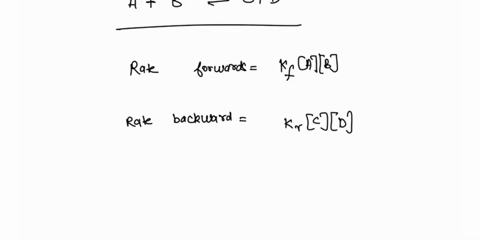 A + B ⇌ C + D
Rate forwards = Kf [A][B]
Rate backward = Kr [C][D]